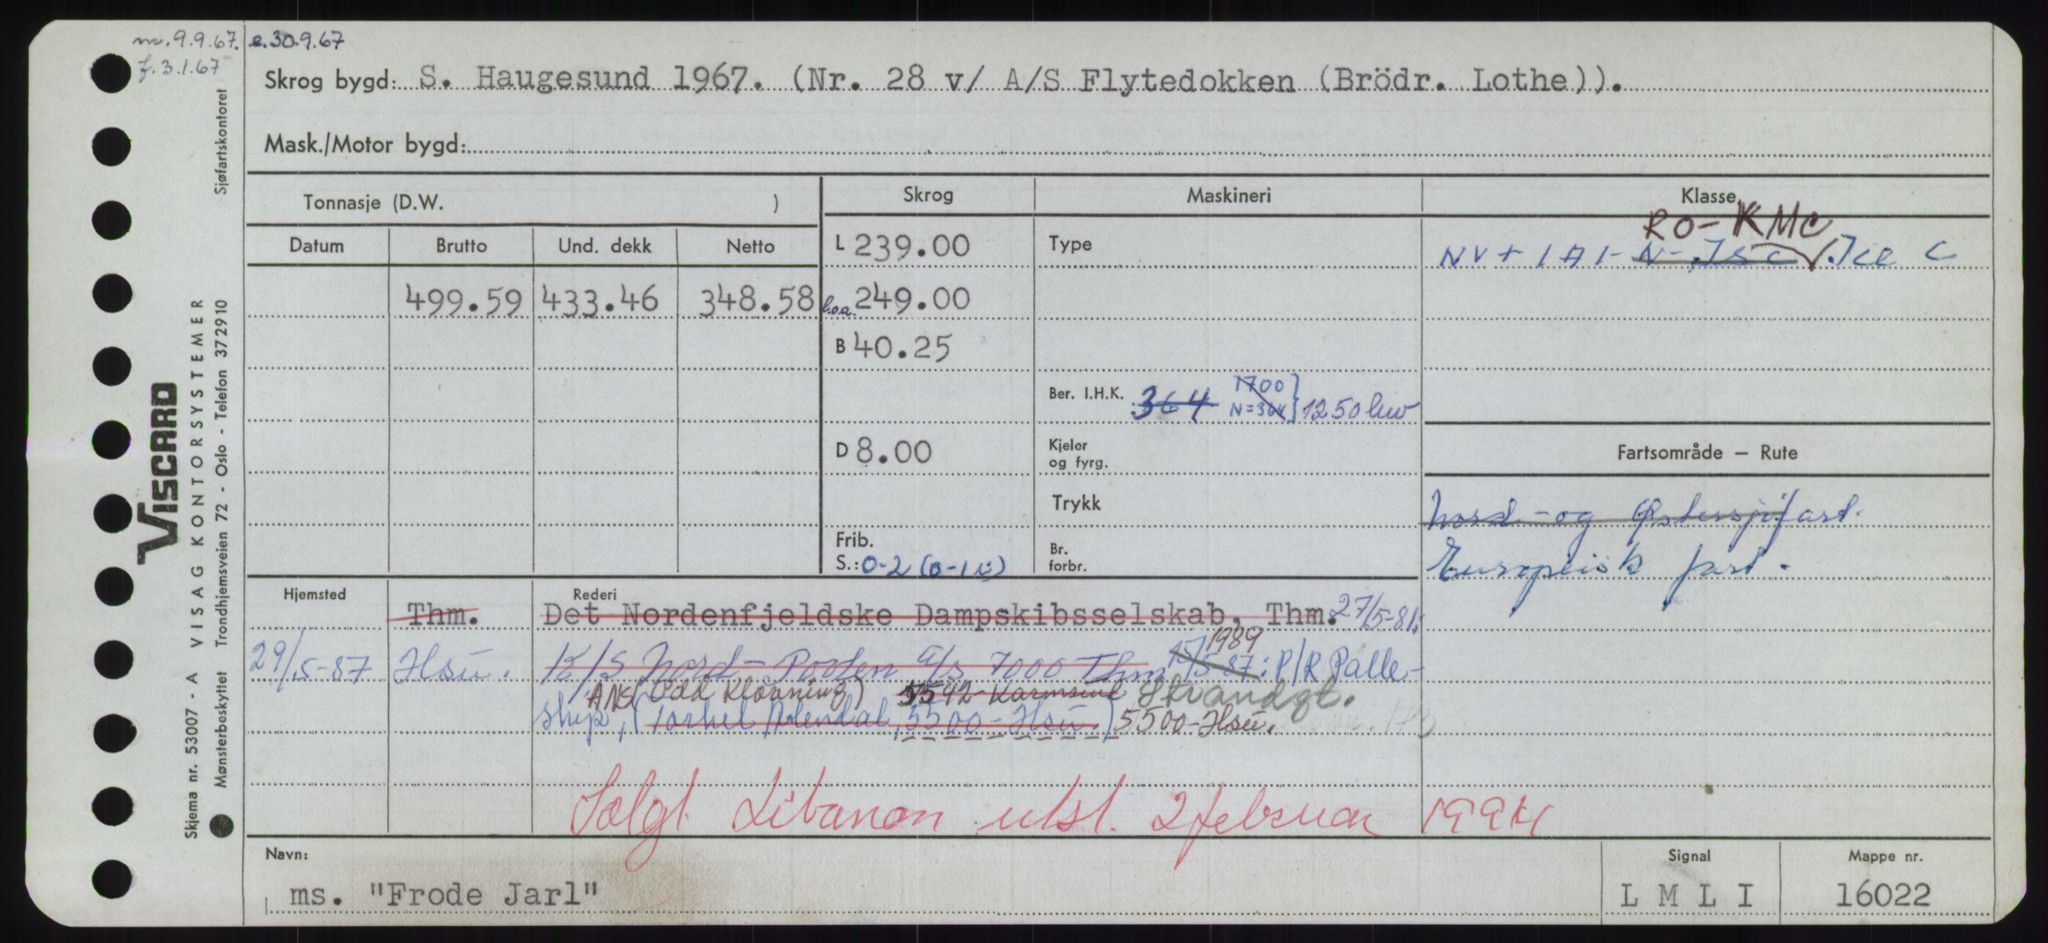 no. 9.9.67. e.30.9.67
f. 3.1.67
Skrog bygd: S. Haugesund 1967. (Nr. 28 v/ A/S Flytedokken (Brödr. Lothe)).
Mask./Motor bygd:
Tonnasje (D.W. ) Skrog Maskineri Klasse
RO-KMC
Datum Brutto Und. dekk Netto L 239.00 Type NV + 1A1- N-, Isc, Ice C
499.59 433.46 348.58 l.o.a. 249.00
B 40.25
Ber. I.H.K. 364 1700 N=364 } 1250 kw
D 8.00 Kjeler og fyrg. Fartsområde – Rute
Trykk Nord- og Østersjøfart.
Frib. S.: 0-2 Br. forbr. Europeisk fart.
Hjemsted Rederi
Thm. Det Nordenfjeldske Dampskibsselskab, Thm. 27/5-81:
1989
29/5-87 Hsu. K/S Nord-Posten a/s 7000 Thm 15/5-87: P/R Palle-
ANS (Odd Kløvning) 5542-Karmsund Strandgt.
ship, (Torkel Alendal, 5500-Hsu.) 5500-Hsu. 173
Solgt Libanon utsl. 2 februar 1994
Navn: Signal Mappe nr.
ms. "Frode Jarl" L M L I 16022
VISCARD
VISAG KONTORSYSTEMER
Skjema nr. 53007 - A
Mønsterbeskyttet Trondhjemsveien 72 - Oslo - Telefon 372910 Sjøfartskontoret